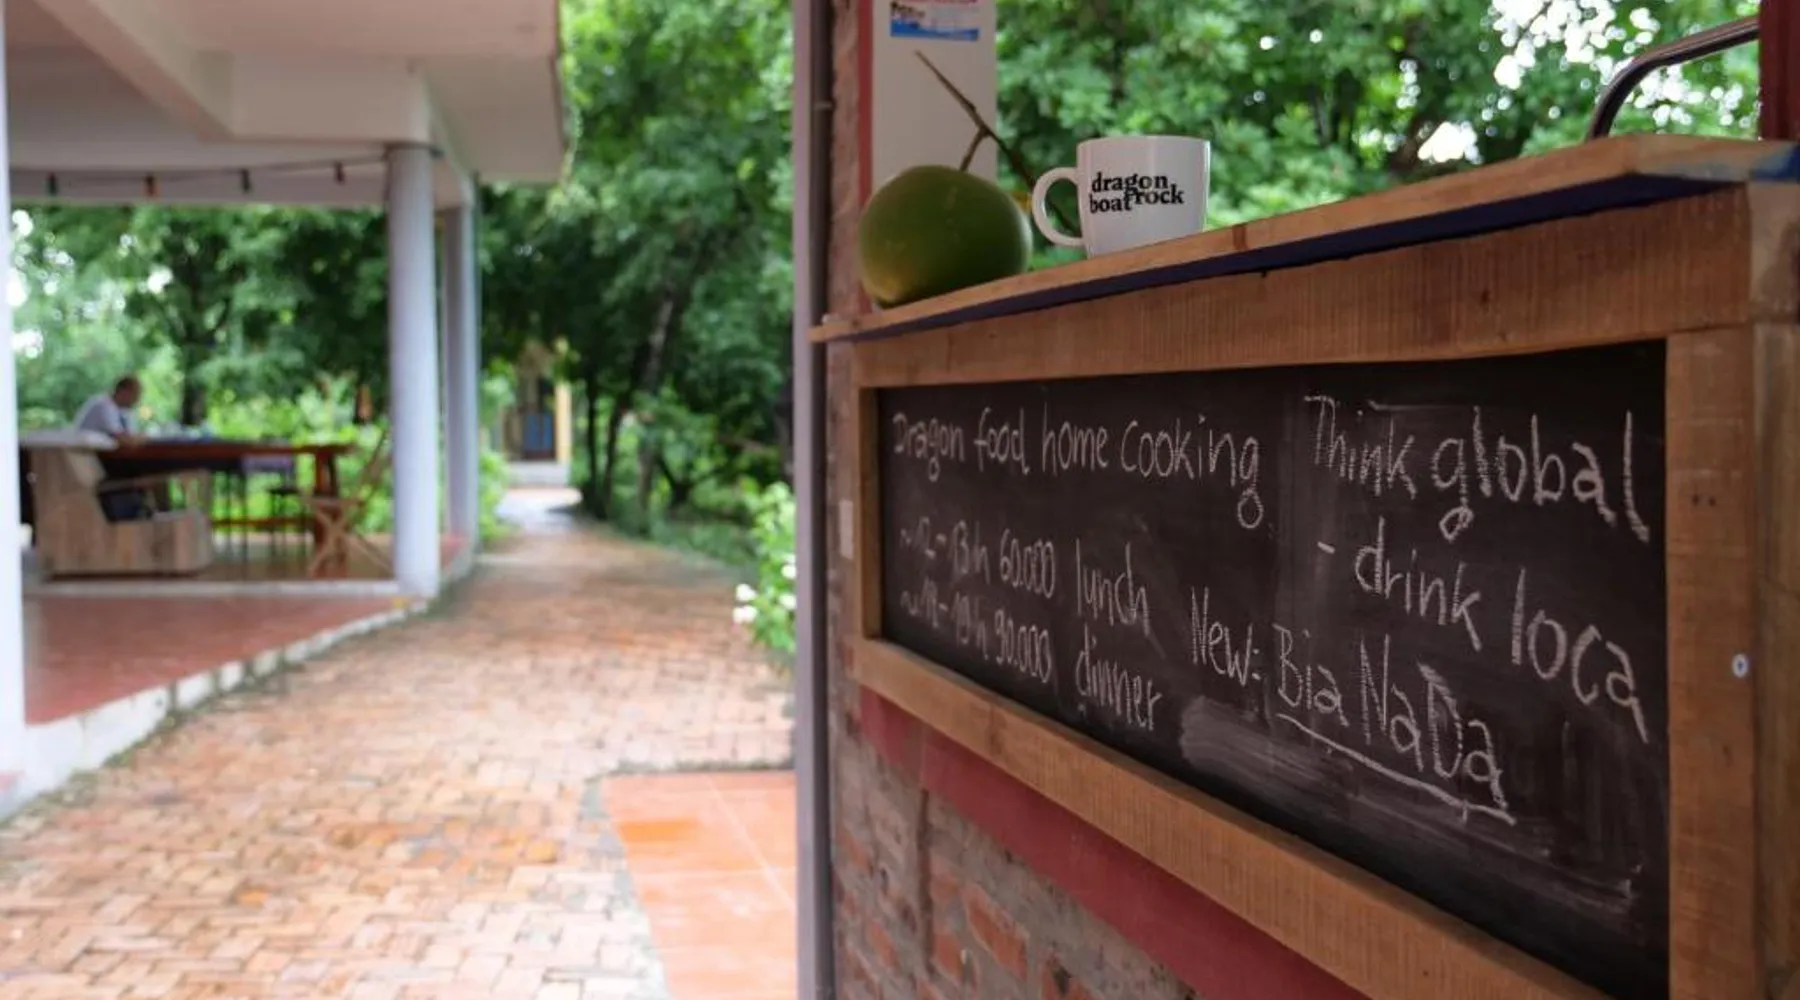 dragon
boat rock
Dragon food home cooking
~12-13h 60.000 lunch
~18-19h 90.000 dinner
Think global
- drink loca
New: Bia NaDa